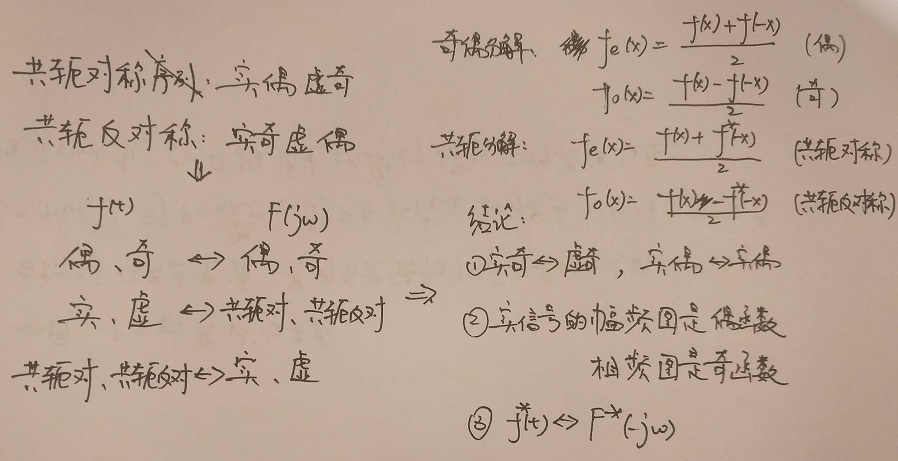 共轭对称序列：实偶虚奇
共轭反对称：实奇虚偶
⇓
f(t) F(jω)
偶、奇 ↔ 偶、奇
实、虚 ↔ 共轭对、共轭反对 ⇒
共轭对、共轭反对 ↔ 实、虚
奇偶分解： fe(x) = f(x)+f(-x) / 2 (偶)
fo(x) = f(x)-f(-x) / 2 (奇)
共轭分解： fe(x) = f(x)+f*(-x) / 2 (共轭对称)
fo(x) = f(x)-f*(-x) / 2 (共轭反对称)
结论：
①实奇↔虚奇，实偶↔实偶
②实信号的幅频图是偶函数
相频图是奇函数
③ f*(t) ↔ F*(-jω)